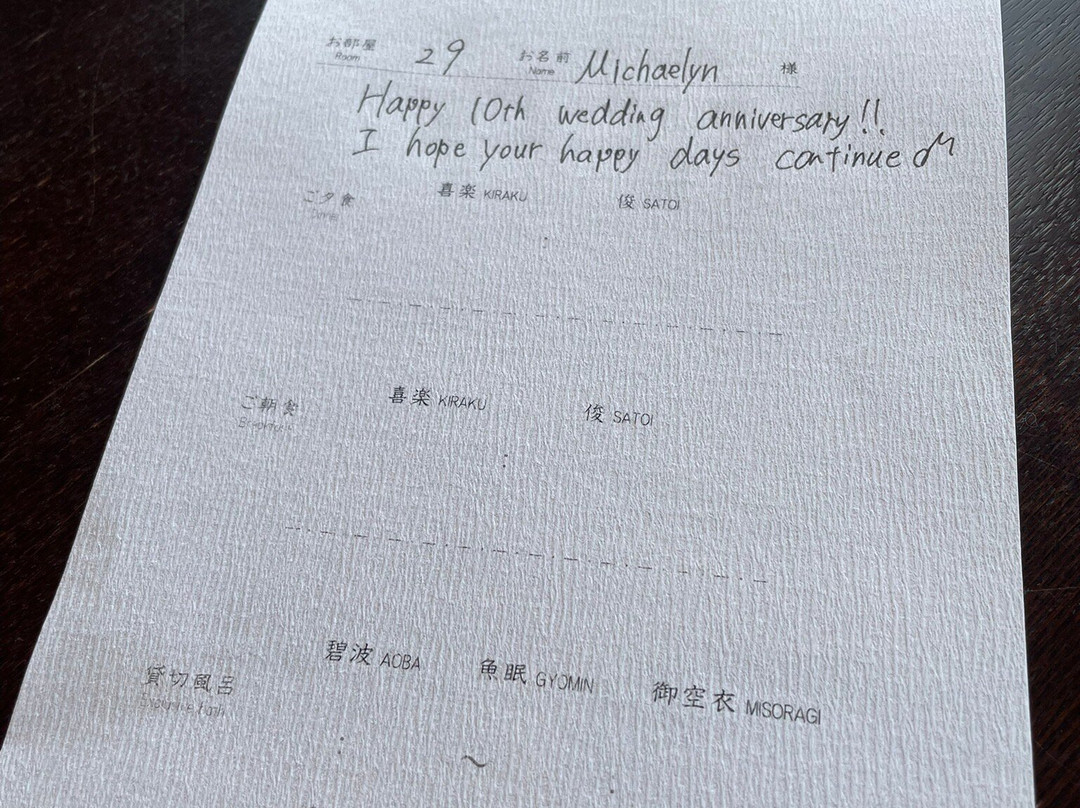 お部屋 29 お名前 Michaelyn 様
Room Name
Happy 10th wedding anniversary!!
I hope your happy days continue
ご夕食 喜楽 KIRAKU 俊 SATOI
Dinner
:
ご朝食 喜楽 KIRAKU 俊 SATOI
Breakfast
:
貸切風呂 碧波 AOBA 魚眠 GYOMIN 御空衣 MISORAGI
: ~ :